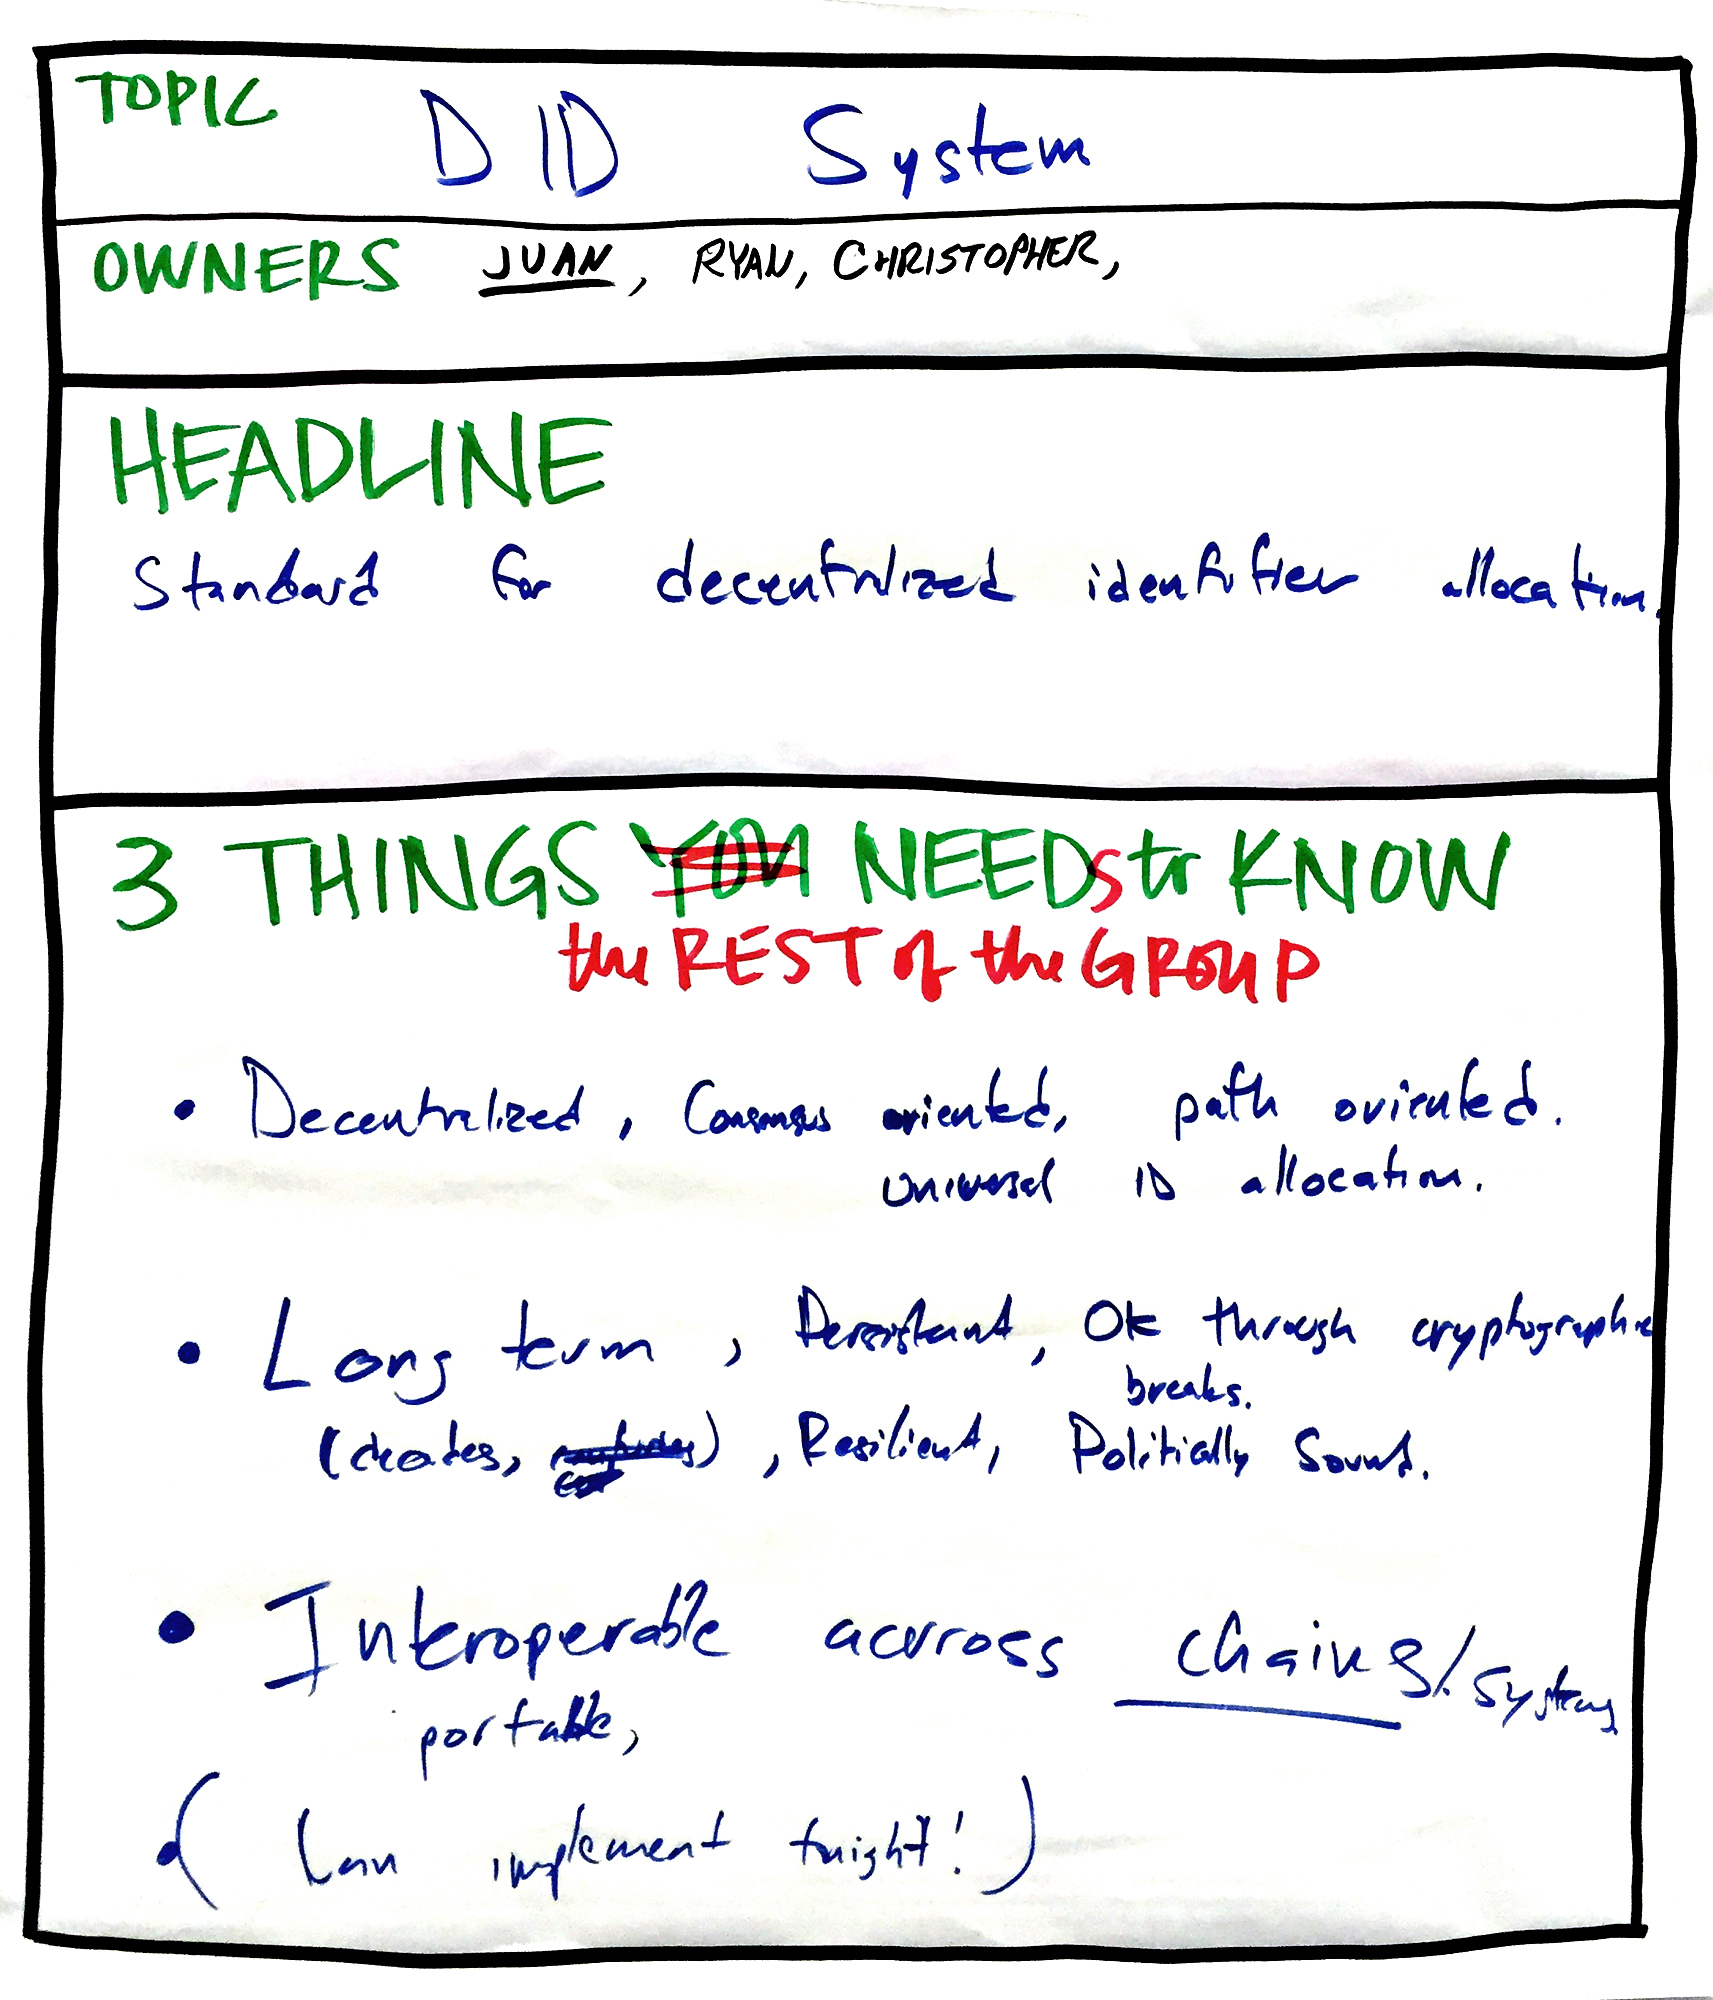 TOPIC DID System
OWNERS JUAN, RYAN, CHRISTOPHER,
HEADLINE
Standard for decentralized identifier allocation.
3 THINGS YOU NEEDS to KNOW
the REST of the GROUP
• Decentralized, Consensus oriented, path oriented.
universal ID allocation.
• Long term, Persistant, Ok through cryptographic
breaks.
(decades, ), Resilient, Politically Sound.
• Interoperable across chains/systems
portable,
• (Can implement tonight!)